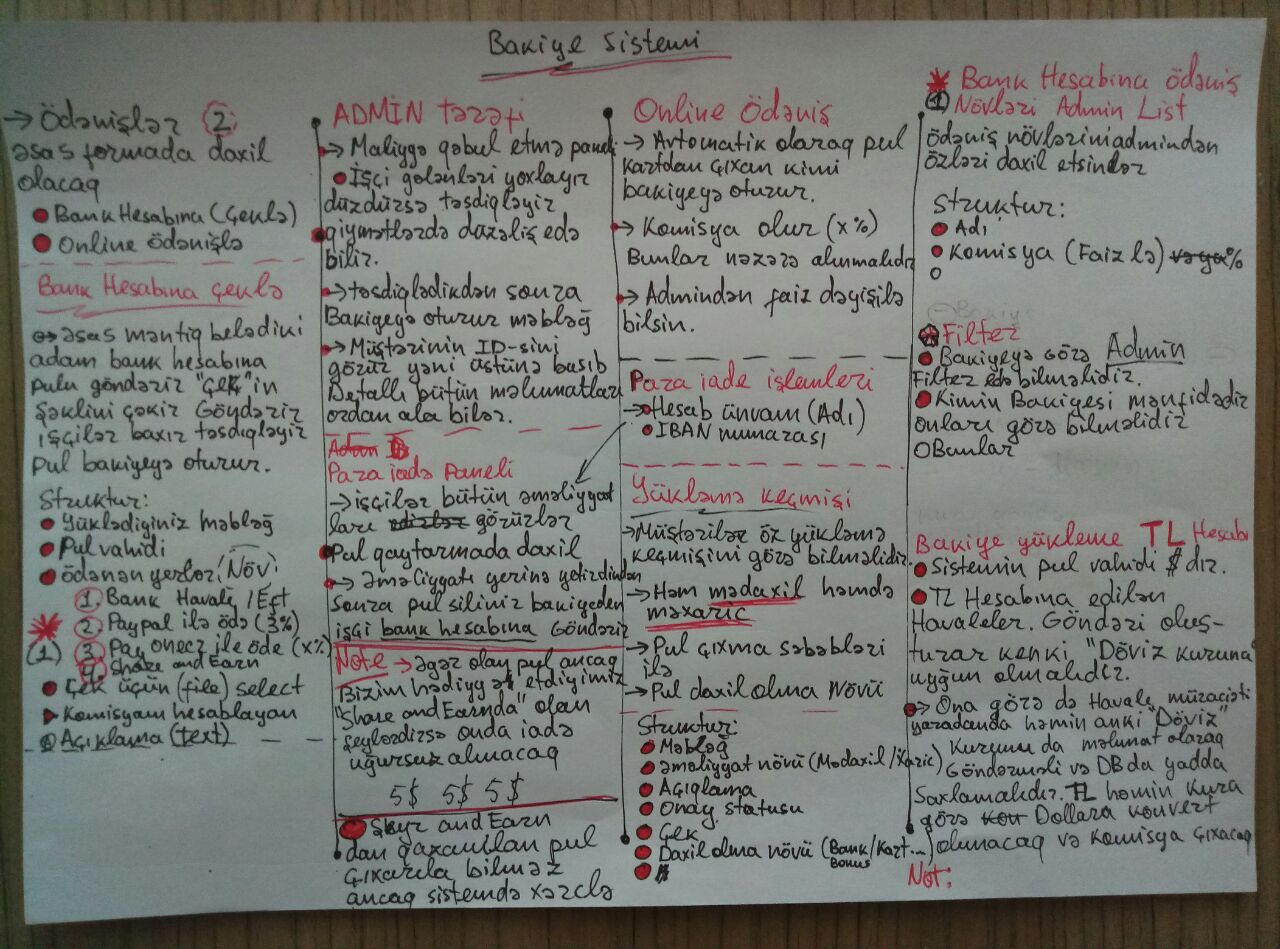 Bakiye Sistemi
→ Ödənişlər 2
əsas formada daxil
olacaq
Bank Hesabına (Çeklə)
Online ödənişlə
Bank Hesabına çeklə
→ əsas məntiq belədi ki
adam bank hesabına
pulu göndərir "Çek"in
şəklini çəkir Göndərir
işçilər baxır təsdiqləyir
pul bakiyeyə oturur.
Struktur:
Yüklədiginiz məbləğ
Pul vahidi
ödənən yerlər (Növ)
1. Bank Havale / Eft
2. Paypal ilə ödə (3%)
(1) 3. Pay onecr ile öde (x%)
4. Share and Earn
Çek üçün (file) select
Komisyanı hesablayan
Açıklama (text)
ADMİN tərəfi
→ Maliyyə qəbul etmə paneli
İşçi gələnləri yoxlayır
düzdürsə təsdiqləyir
qiymətlərdə düzəliş edə
bilir.
→ təsdiqlədikdən sonra
Bakiyeyə oturur məbləğ
→ Müştərinin ID-sini
görür yəni üstünə basıb
Detallı bütün məlumatları
ordan ala bilər.
Para iadə Paneli
→ işçilər bütün əməliyyat
ları görürlər
Pul qaytarmada daxil
→ Əməliyyatı yerinə yetirdindən
sonra pul silinir bakiyeden
işçi bank hesabına Göndərir
Note → Əgər olan pul ancaq
Bizim hədiyyə etdiyimiz
"Share and Earnda" olan
şeylərdirsə onda iadə
uğursuz alınacaq
5$ 5$ 5$
and Earn
dan qazanılan pul
çıxarıla bilməz
ancaq sistemdə xərclə
Online Ödəniş
→ Avtomatik olaraq pul
kartdan çıxan kimi
bakiyeyə oturur.
→ Komisya olur (x%)
Bunlar nəzərə alınmalıdır
→ Admindən faiz dəyişilə
bilsin.
Para iade işlemleri
→ Hesab ünvanı (Adı)
IBAN numarası
Yükləmə keçmişi
→ Müştərilər öz yükləmə
keçmişini görə bilməlidir.
→ Həm mədaxil həmdə
məxaric
→ Pul çıxma səbəbləri
ilə
→ Pul daxil olma Növü
Struktur:
Məbləğ
Əməliyyat növü (Mədaxil/Xaric)
Açıqlama
Onay statusu
Çek
Daxil olma növü (Bank/Kart...)
Bonus
Bank Hesabına ödəniş
(1) Növləri Admin List
Ödəniş növlərini admindən
özləri daxil etsinlər
Struktur:
Adı
Komisya (Faiz lə) %
Filter
Bakiyeyə görə Admin
Filter edə bilməlidir.
Kimin Bakiyesi mənfidədir
onları görə bilməlidir
Bunlar
Bakiye yükleme TL Hesabı
Sistemin pul vahidi $ dır.
TL Hesabına edilən
Havaleler. Göndəri oluş-
turar kənki "Döviz kuruna"
uyğun olmalıdır.
→ Ona görə də Havale müraciəti
yaradanda həmin anki "Döviz"
Kurunu da məlumat olaraq
Göndərməli və DB da yadda
Saxlamalıdır. TL həmin kura
görə Dollara konvert
olunacaq və komisya çıxacaq
Not: